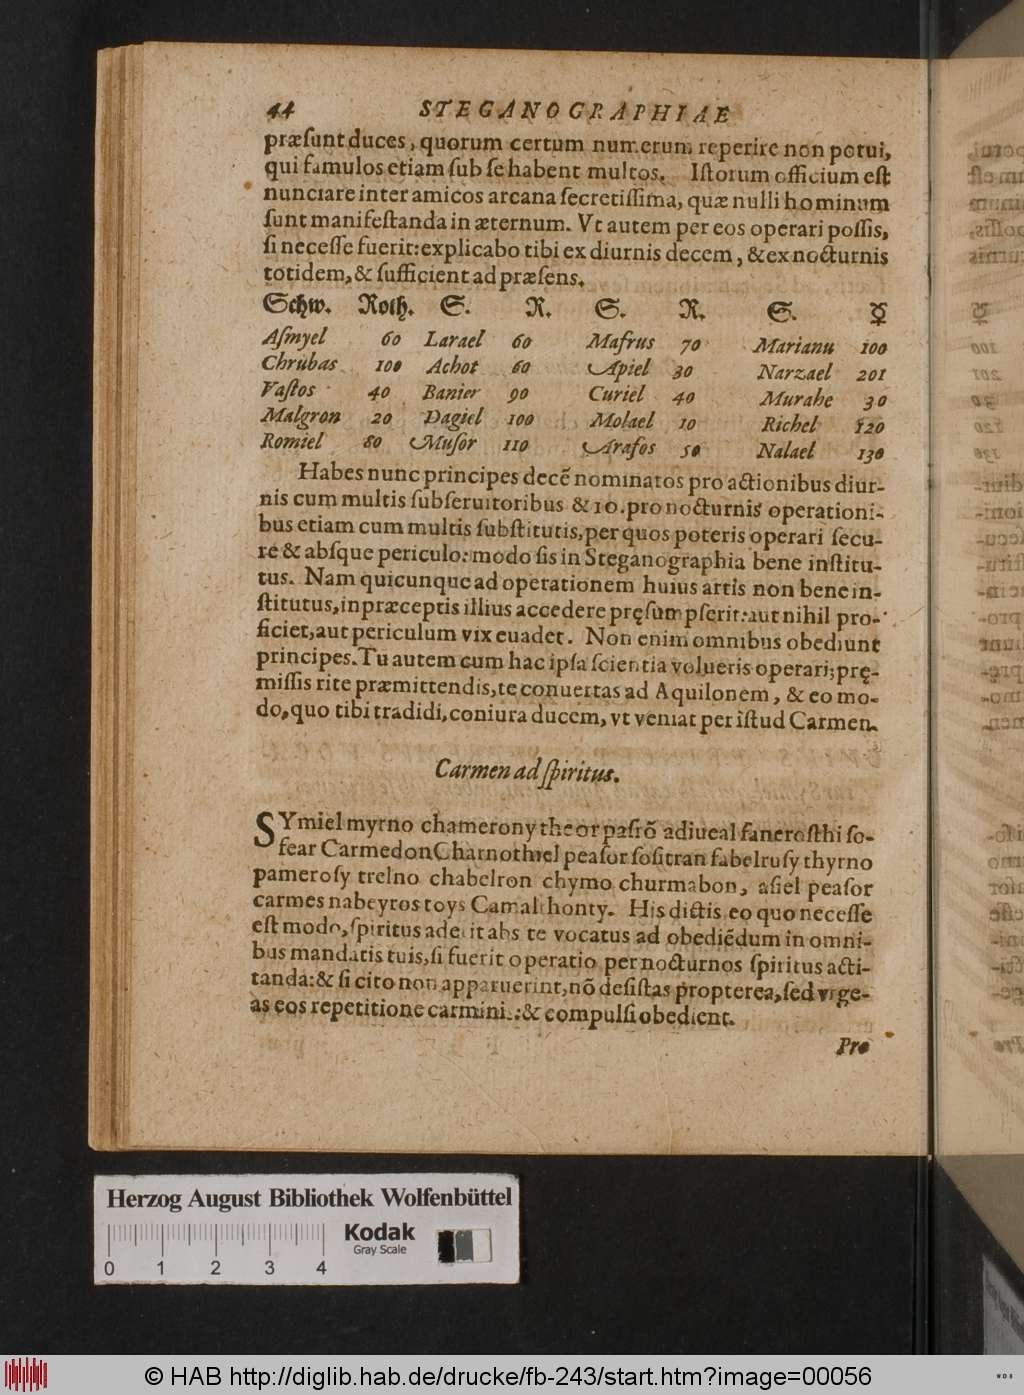 44 STEGANOGRAPHIAE
præſunt duces, quorum certum numerum reperire non potui,
qui famulos etiam ſub ſe habent multos. Iſtorum officium eſt
nunciare inter amicos arcana ſecretiſſima, quæ nulli hominum
ſunt manifeſtanda in æternum. Vt autem per eos operari poſſis,
ſi neceſſe fuerit: explicabo tibi ex diurnis decem, & ex nocturnis
totidem, & ſufficient ad præſens.
Schw. Roth. S. R. S. R. S. ☿
Aſmyel 60 Larael 60 Mafrus 70 Marianu 100
Chrubas 100 Achot 60 Apiel 30 Narzael 201
Vaſtos 40 Banier 90 Curiel 40 Murahe 30
Malgron 20 Dagiel 100 Molael 10 Richel 120
Romiel 80 Muſor 110 Arafos 50 Nalael 130
Habes nunc principes decē nominatos pro actionibus diur-
nis cum multis ſubſeruitoribus & 10. pro nocturnis operationi-
bus etiam cum multis ſubſtitutis, per quos poteris operari ſecu-
re & abſque periculo: modo ſis in Steganographia bene inſtitu-
tus. Nam quicunque ad operationem huius artis non bene in-
ſtitutus, in præceptis illius accedere pręſumpſerit: aut nihil pro-
ficiet, aut periculum vix euadet. Non enim omnibus obediunt
principes. Tu autem cum hac ipſa ſcientia volueris operari; prę-
miſſis rite præmittendis, te conuertas ad Aquilonem, & eo mo-
do, quo tibi tradidi, coniura ducem, vt veniat per iſtud Carmen.
Carmen ad ſpiritus.
SYmiel myrno chamerony theor paſrō adiueal faneroſthi ſo-
fear Carmedon Charnothiel peaſor ſoſitran fabelruſy thyrno
pameroſy trelno chabelron chymo churmabon, aſiel peaſor
carmes nabeyros toys Camalthonty. His dictis eo quo neceſſe
eſt modo, ſpiritus aderit abs te vocatus ad obediēdum in omni-
bus mandatis tuis, ſi fuerit operatio per nocturnos ſpiritus acti-
tanda: & ſi cito non apparuerint, nō deſiſtas propterea, ſed vrge-
as eos repetitione carminis: & compulſi obedient.
Pro
Herzog August Bibliothek Wolfenbüttel
Kodak
Gray Scale
0 1 2 3 4
© HAB http://diglib.hab.de/drucke/fb-243/start.htm?image=00056